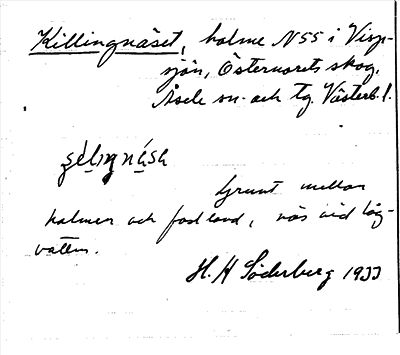 Killingnäset, holme N55 i Visp-
sjön, Östernorets skog,
Åsele sn. och tg. Västerb. l.
Grunt mellan
holmen och fastland, näs vid låg-
vatten.
H. H Söderberg 1933